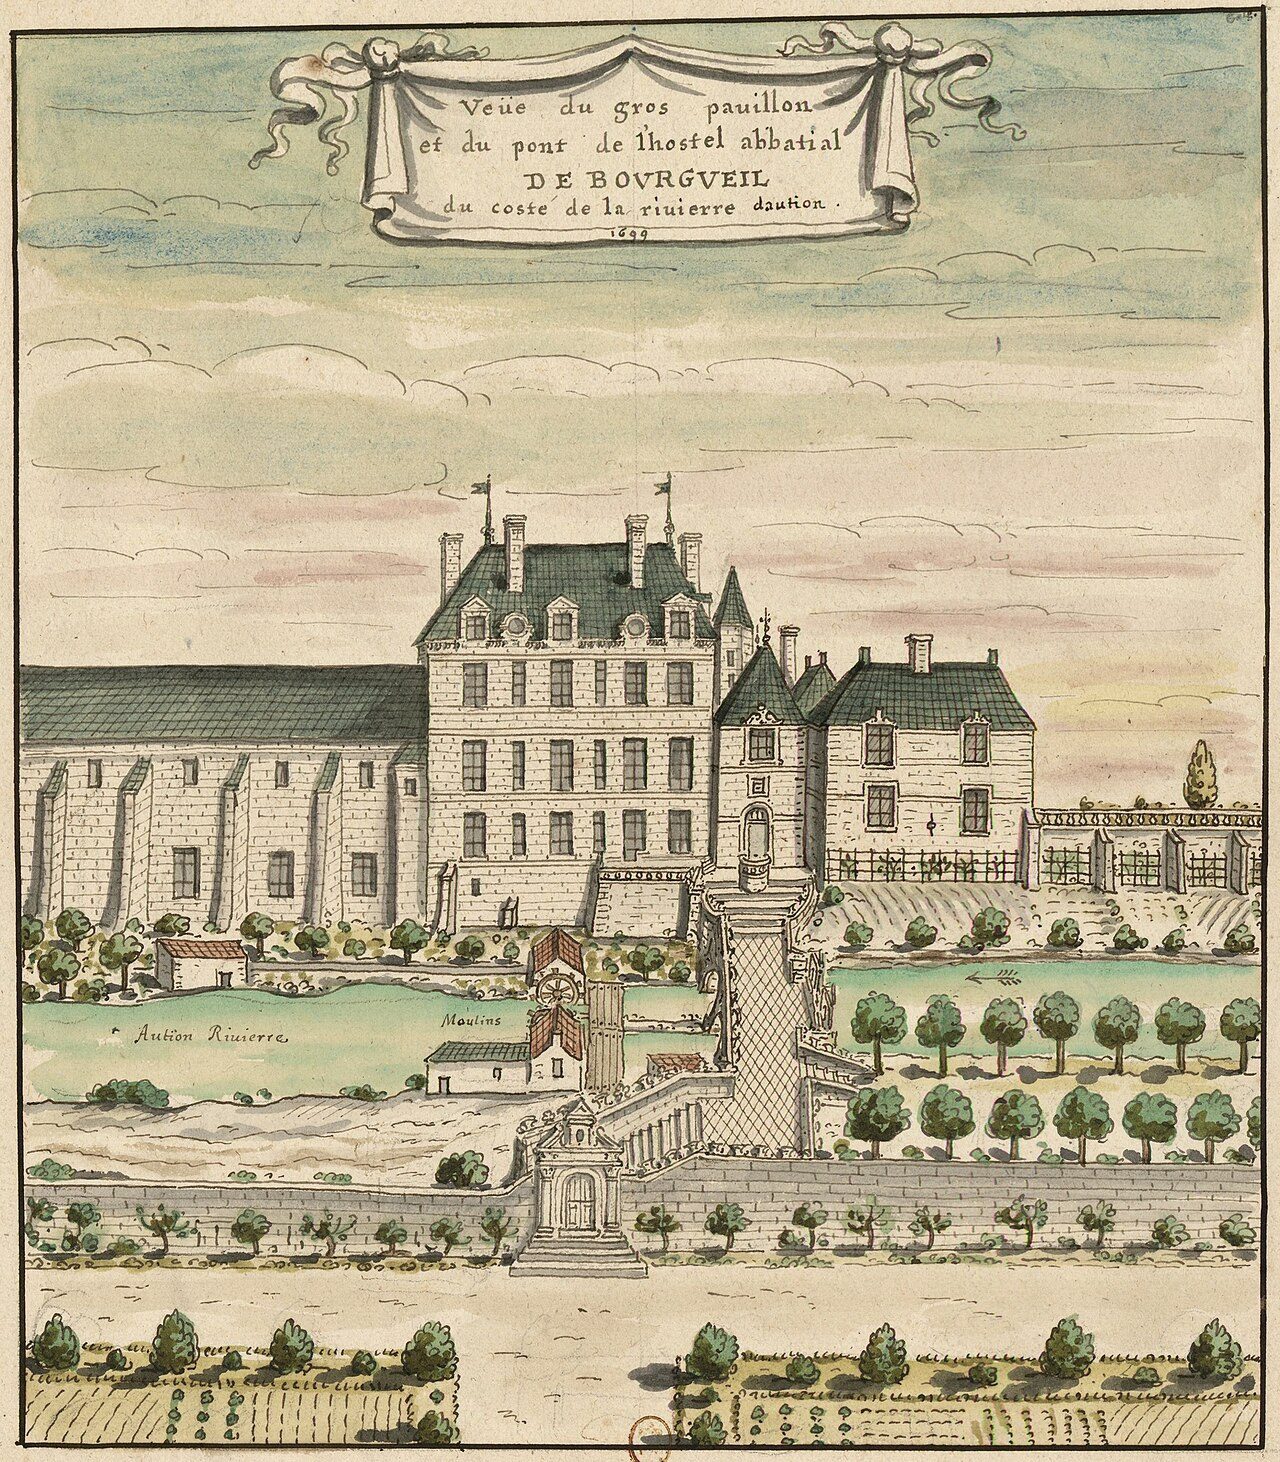 Veüe du gros pauillon
et du pont de l'hostel abbatial
DE BOVRGVEIL
du costé de la riuierre daution .
1699
Moulins
Aution Riuierre